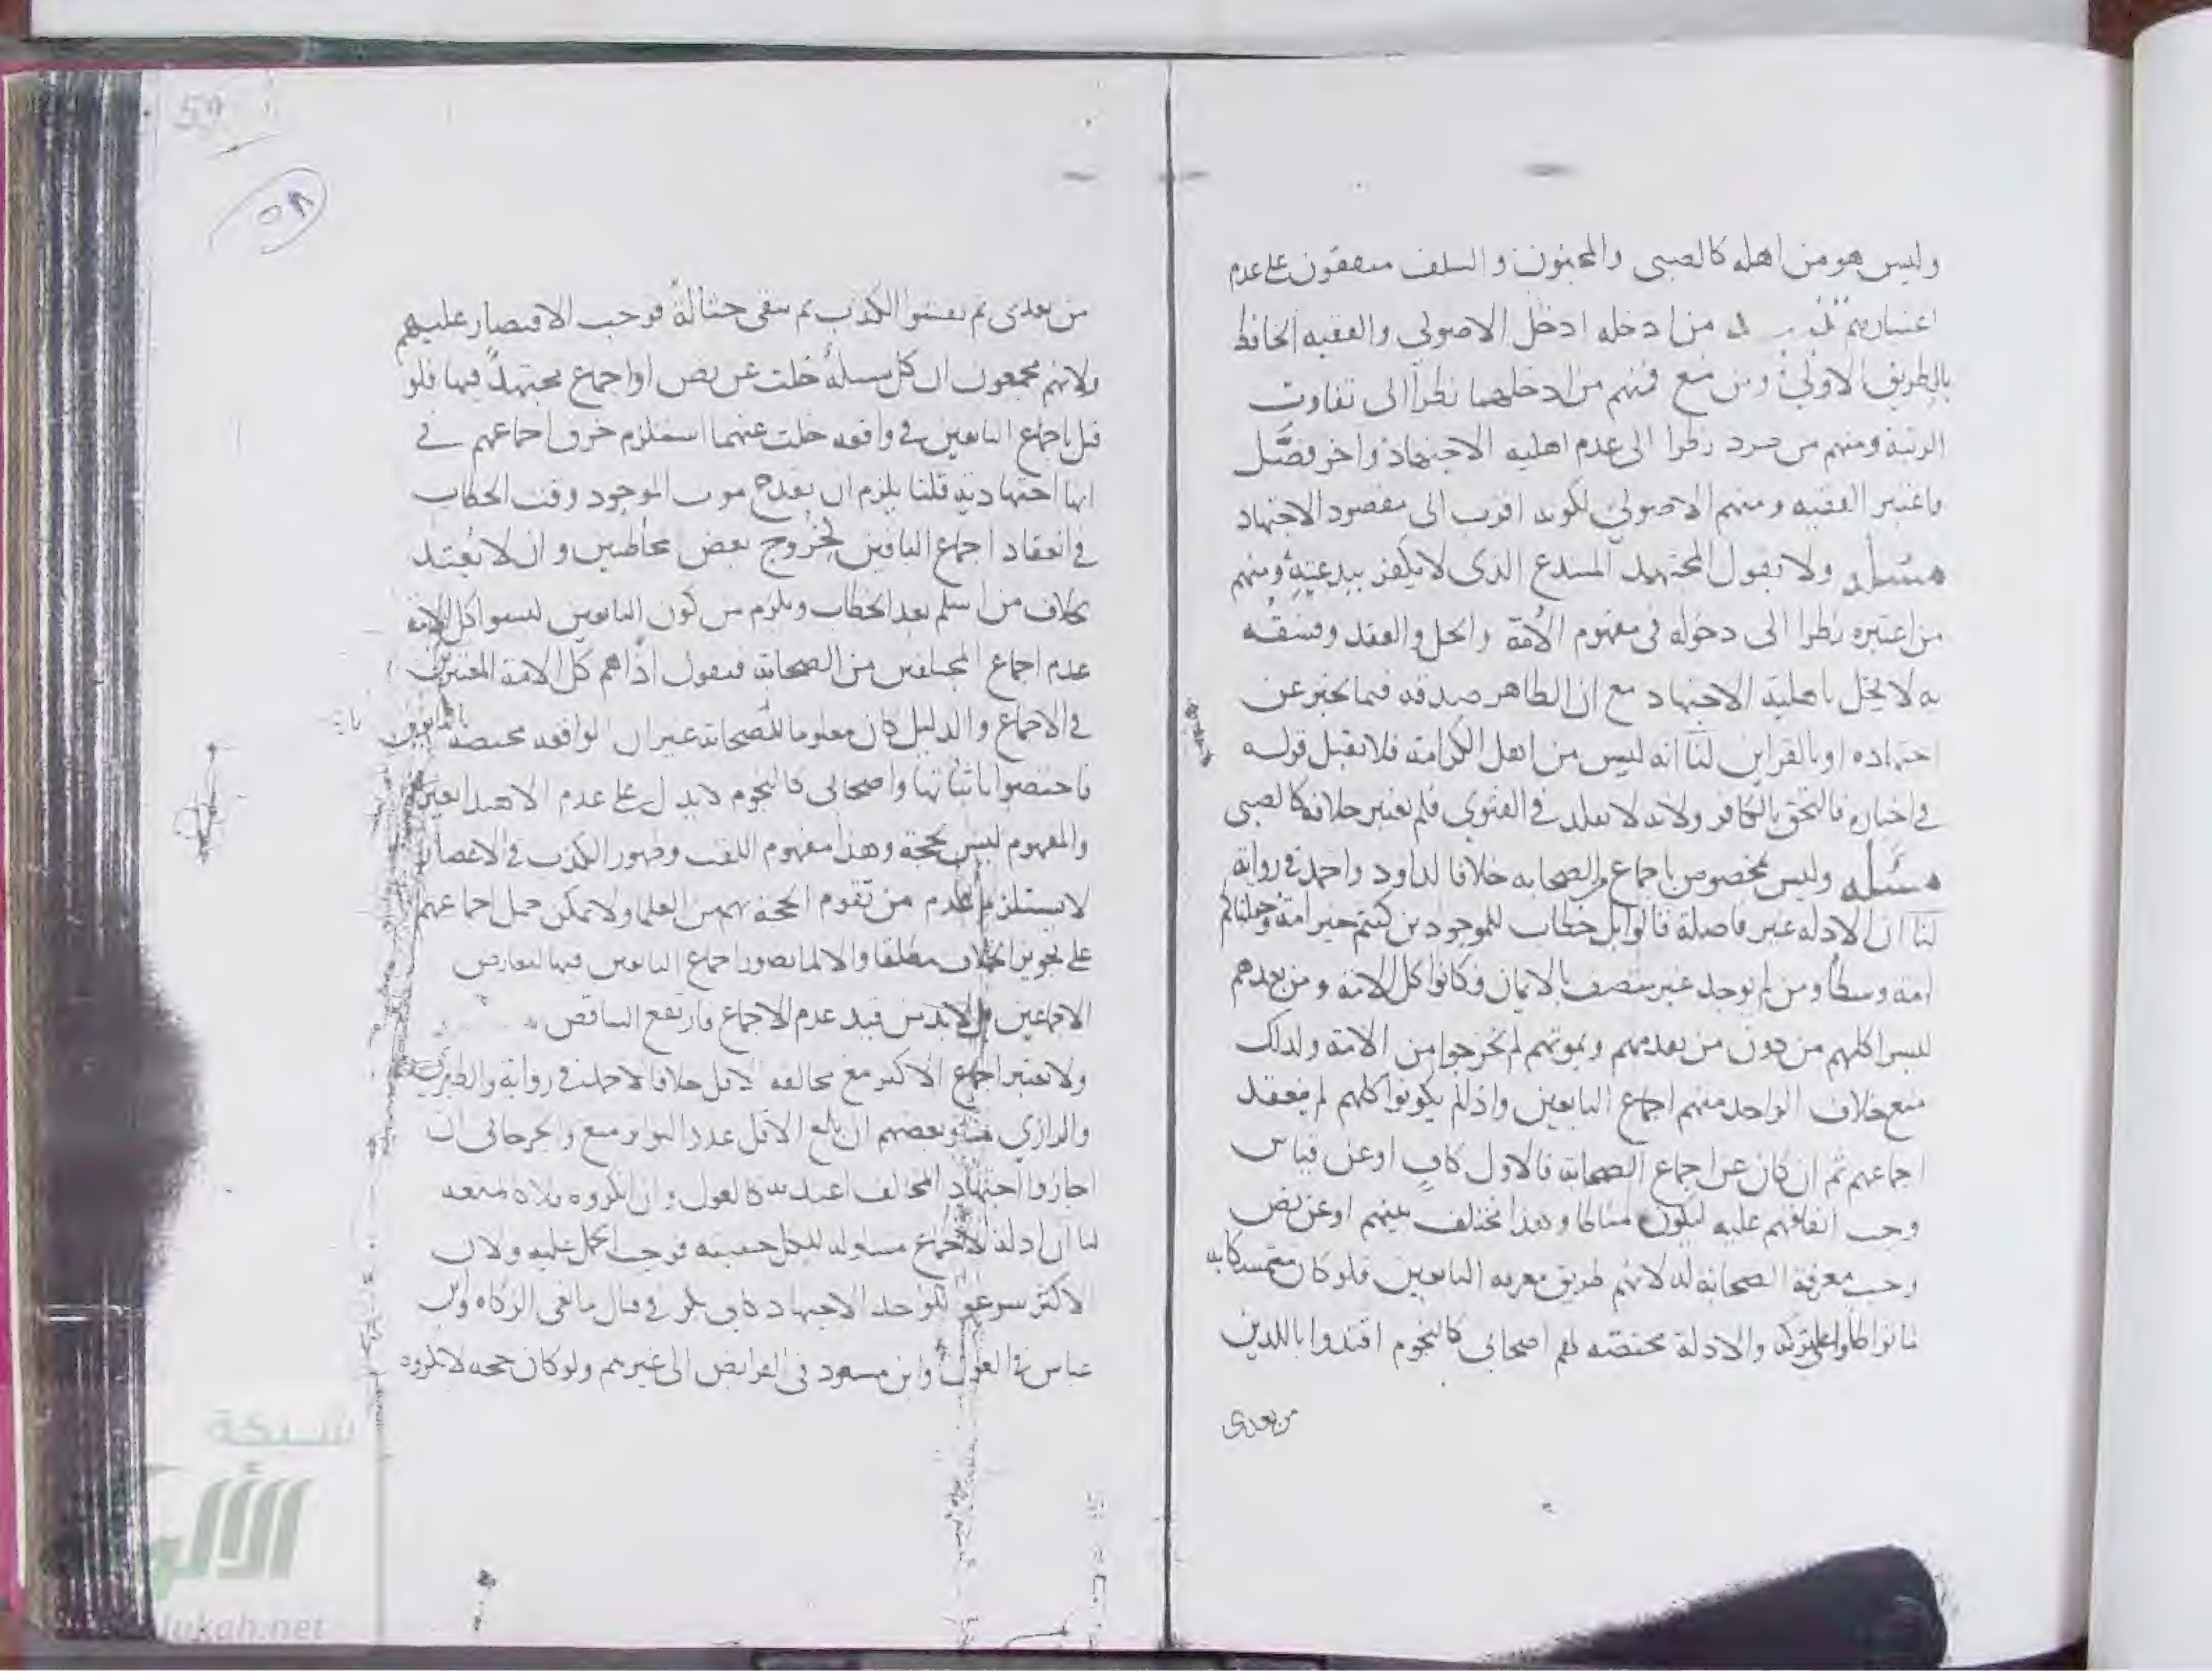 وليس هو من اهله كالصبي والمجنون والسلف متفقون على عدم
اعتبارهم من ادخله ادخل الاصولي والفقيه الحافظ
بالطريق الاولى ومن منع فمنهم من ادخلهما نظرا الى تفاوت
الرتبة ومنهم من نظرا الى عدم اهلية الاجتهاد واخر فصَّل
فاعتبر الفقيه ومنهم الاصولي لكونه اقرب الى مقصود الاجتهاد
مسئلة ولا بقول المجتهد المبتدع الذى لا يكفر ببدعته ومنهم
من اعتبره نظرا الى دخوله فى مفهوم الأمة والحل والعقد وفسقه
به لا يخل باهلية الاجتهاد مع ان الظاهر صدقه فيما يخبر عن
اجتهاده او بالقراين لنا انه ليس من اهل الكرامة فلا يقبل قوله
في اخباره فالتحق بالكافر ولانه لا يقلد في الفتوى فلم يعتبر خلافه كالصبي
مسئلة وليس مخصوص باجماع الصحابه خلافا لداود واحمد في رواية
لنا ان الادله غير فاصلة قالوا بل خطاب للموجودين كنتم خير امة وجعلناكم
امة وسطاً ومن لم يوجد غير متصف بالايمان فكانوا كل الامة ومن بعدهم
ليسوا كلهم من دون من تقدمهم وبموتهم لم يخرجوا من الامة ولذلك
منع خلاف الواحد منهم اجماع التابعين واذ لم يكونوا كلهم لم ينعقد
اجماعهم ثم ان كان عن اجماع الصحابة فالاول كافٍ او عن قياس
وجب اتفاقهم عليه ليكون مناطا وهذا مختلف بينهم او عن نص
وجب معرفة الصحابة له لانهم طريق معرفة التابعين فلو كان متمسكا به
ما تواطاوا على تركه والادلة مختصة لهم اصحابي كالنجوم اقتدوا باللذين
من بعدى
59
٥٨
من بعدى ثم يفشوا الكذب ثم تبقى حثالة فوجب الاقتصار عليهم
ولانهم مجمعون ان كل مسئلة خلت عن نص او اجماع مجتهد فيها فلو
قيل باجماع التابعين في واقعه خلت عنهما استلزم خرق اجماعهم في
انها اجتهادية قلنا يلزم ان يقدح موت الموجود وقت الخطاب
في انعقاد اجماع الباقين لخروج بعض مخاطبين وان لا يعتد
بخلاف من اسلم بعد الخطاب ويلزم من كون التابعين ليسوا كل الامة
عدم اجماع المخلفين من الصحابة فنقول اذاً هم كل الامة المعتبرين
في الاجماع والدليل كان معلوما للصحابة غير ان الواقعه مختصة بالتابعين
فاختصوا باثباتها واصحابي كالنجوم لا يدل على عدم الاهتدا بغيرهم
والمفهوم ليس بحجة وهذا مفهوم اللقب وظهور الكذب في الاعصار
لا يستلزم عدم من تقوم الحجة بهم من العلما ولا يمكن حمل اجماعهم
على تجويز الخلاف مطلقا والا لما تصور اجماع التابعين فيها لتعارض
الاجماعين بل لابد من قيد عدم الاجماع فارتفع التناقض
ولا يعتبر اجماع الاكثر مع مخالفة الاقل خلافا لاحمد في رواية والطبري
والرازي وبعضهم ان بلغ الاقل عدد التواتر منع والجرجاني ان
اجازوا اجتهاد المخالف اعتد به كالعول وان انكروه فلا
لنا ان ادلة الاجماع متناوله للكل حقيقة فوجب الحمل عليه ولان
الاكثر سوغوا للواحد الاجتهاد كابى بكر في قتال مانعى الزكاه وابن
عباس في العول وابن مسعود فى الفرايض الى غيرهم ولو كان حجه لانكروه
شبكة
الألوكة
lukah.net